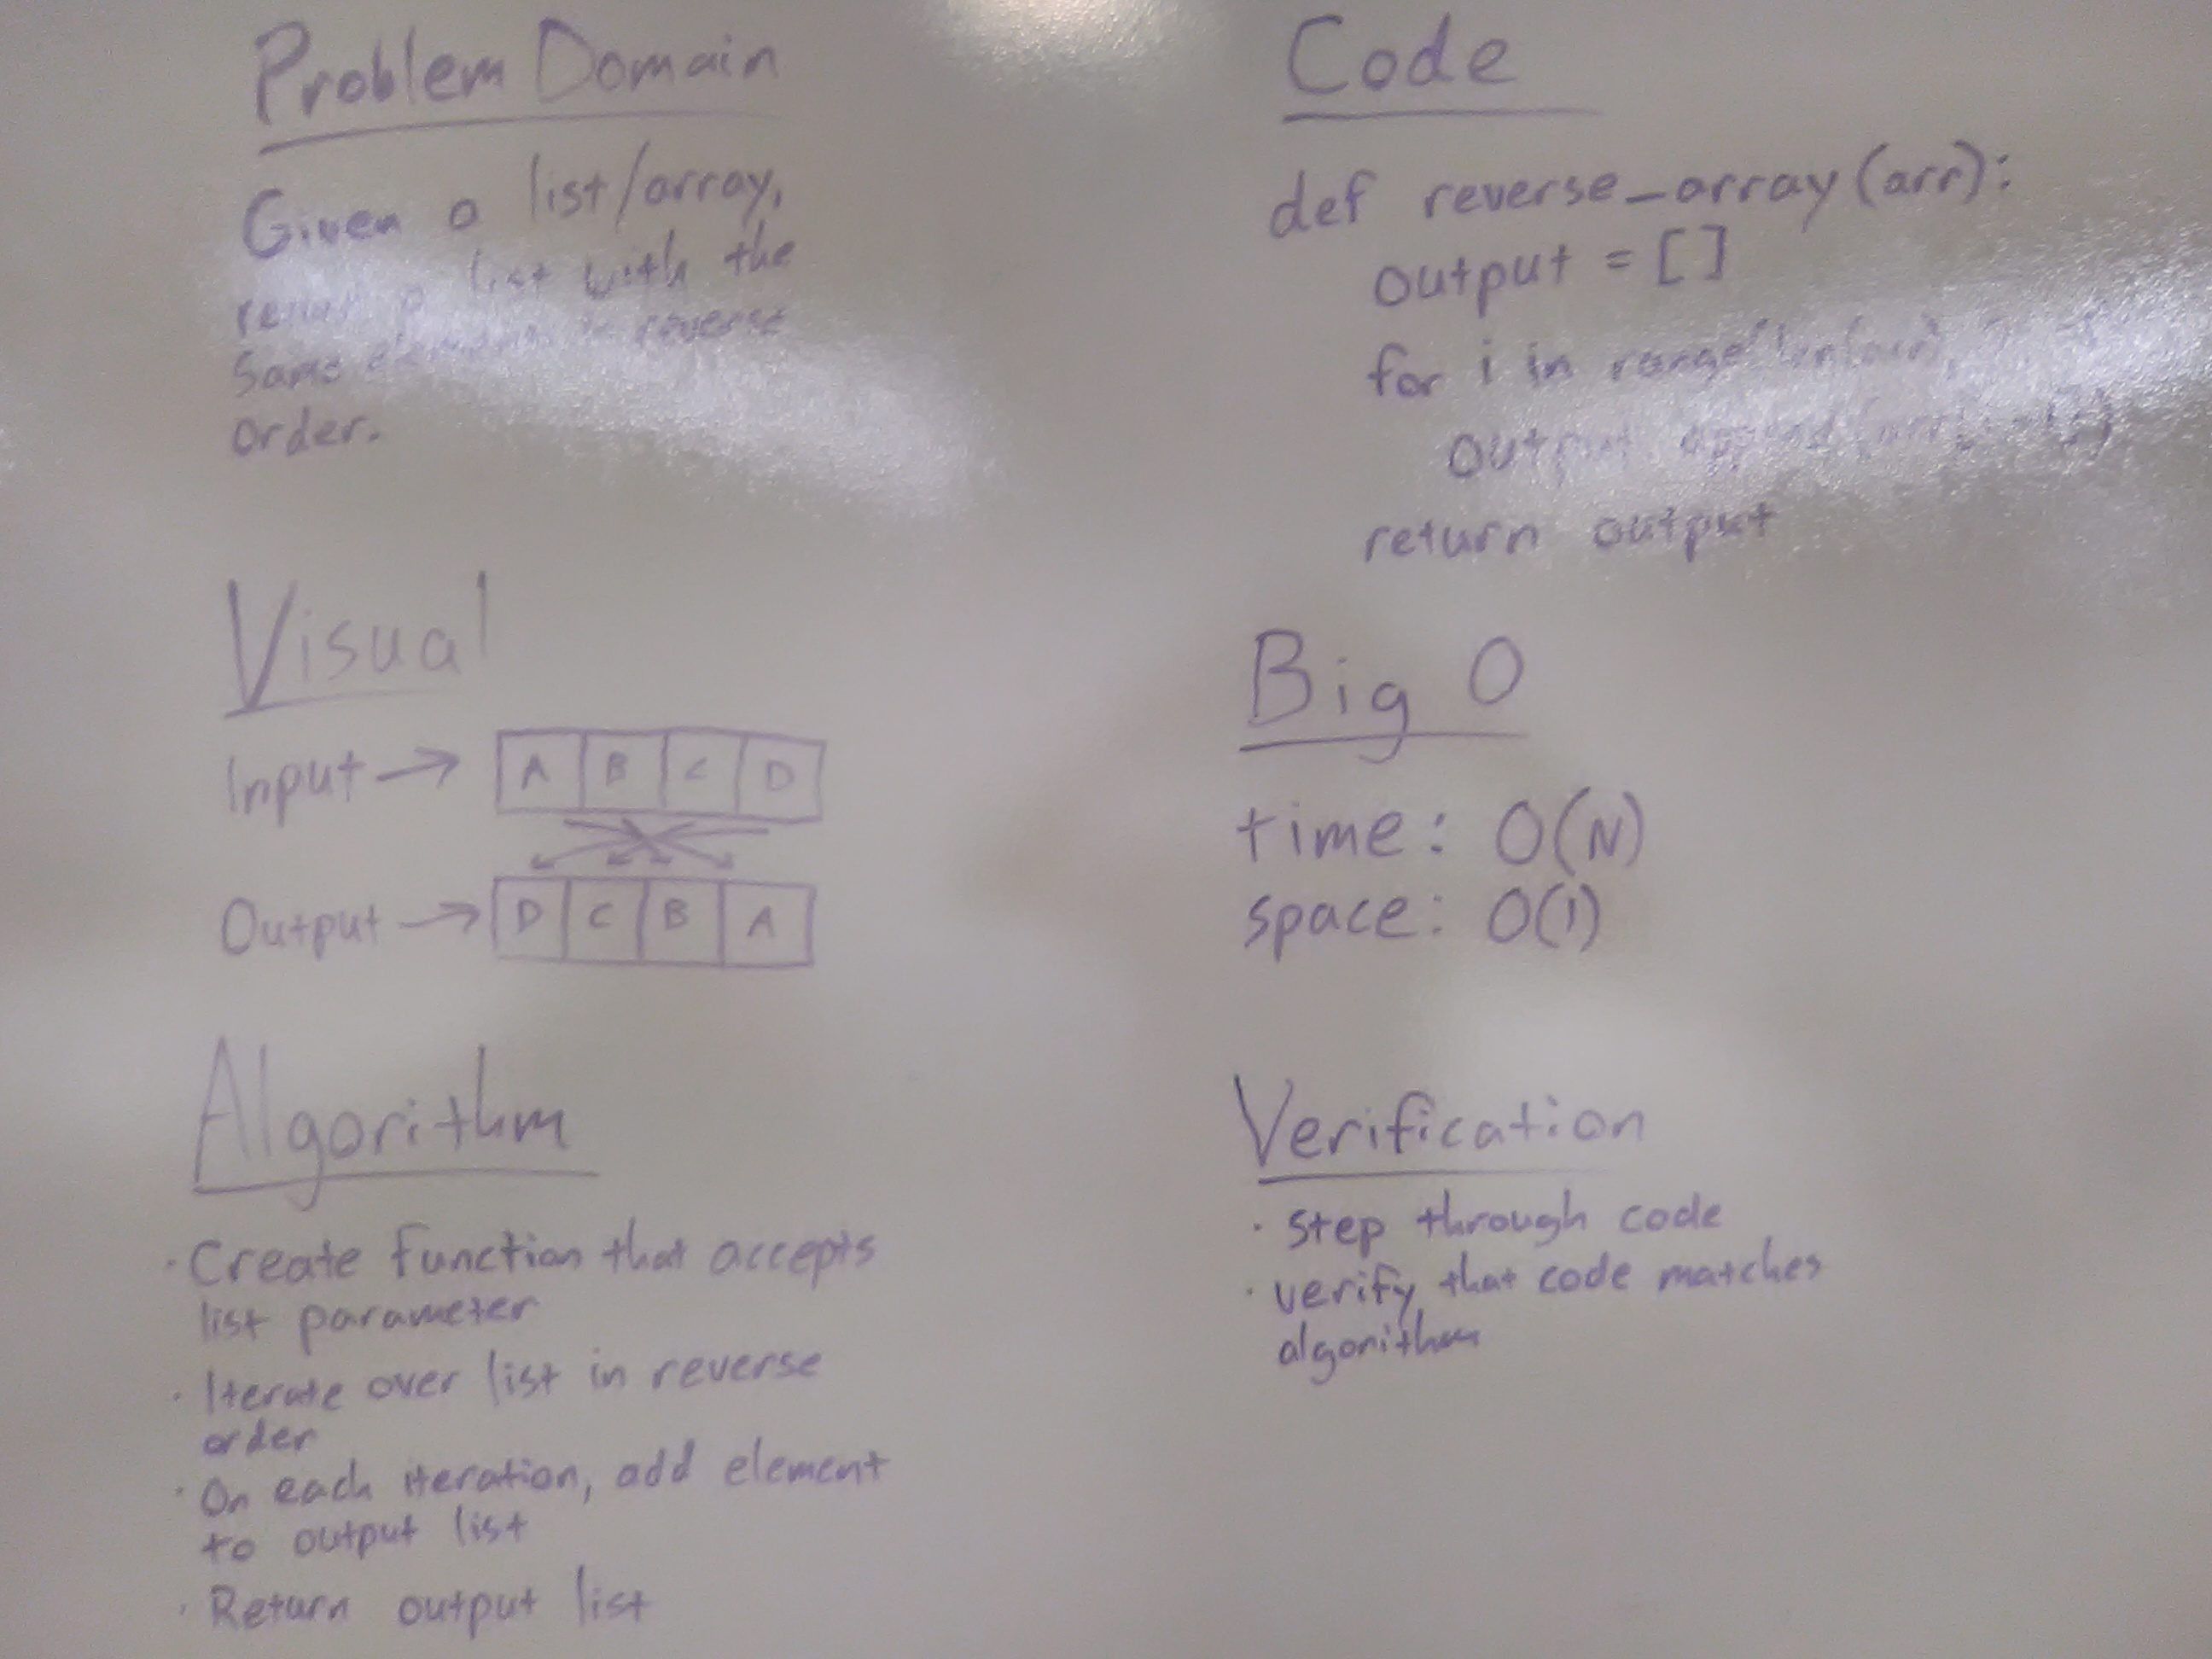 Problem Domain
Given a list/array,
return a list with the
same elements in reverse
order.
Visual
Input → A B C D
Output → D C B A
Algorithm
· Create function that accepts
list parameter
· Iterate over list in reverse
order
· On each iteration, add element
to output list
· Return output list
Code
def reverse_array(arr):
output = []
for i in range(len(arr),
output.append(arr
return output
Big O
time: O(N)
space: O(1)
Verification
· step through code
· verify that code matches
algorithm